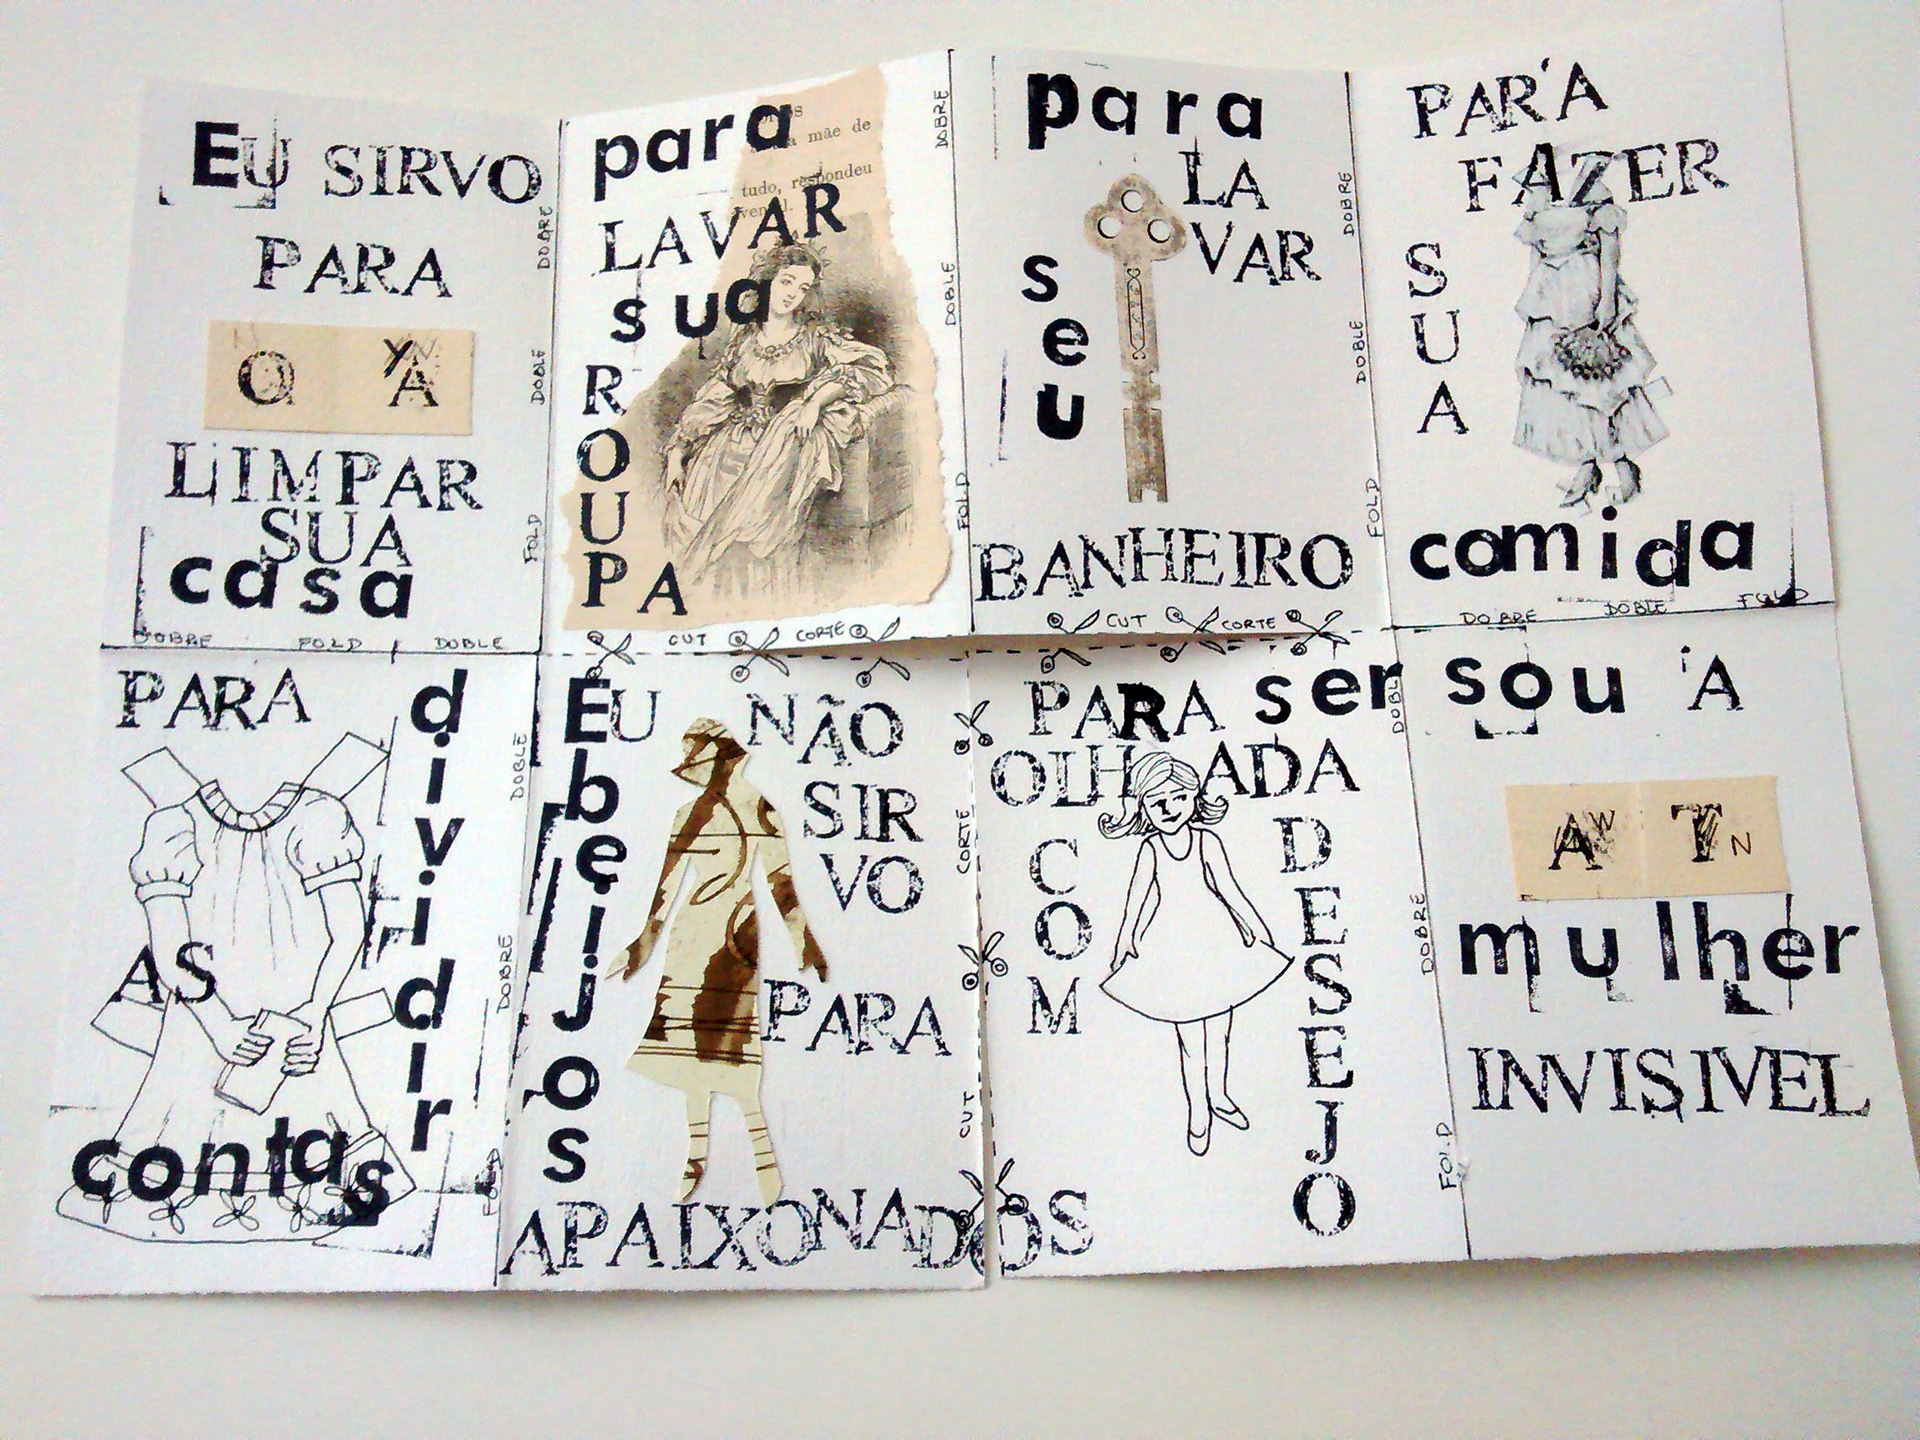 EU SIRVO
PARA
LIMPAR
SUA
casa
para
mãe de
tudo, respondeu
LAVAR
sua
ROUPA
para
LA
VAR
seu
BANHEIRO
PARA
FAZER
SUA
comida
DOBRE
DOBLE
FOLD
DOBRE
DOBLE
FOLD
DOBRE
DOBLE
FOLD
DOBRE FOLD DOBLE
CUT CORTE
CUT CORTE
DOBRE DOBLE FOLD
PARA
dividir
AS
contas
DOBLE
DOBRE
FOLD
EU NÃO
SIR
VO
PARA
E beijos
APAIXONADOS
CORTE
CUT
PARA ser
OLHADA
COM
DESEJO
DOBLE
DOBRE
FOLD
sou A
mulher
INVISIVEL